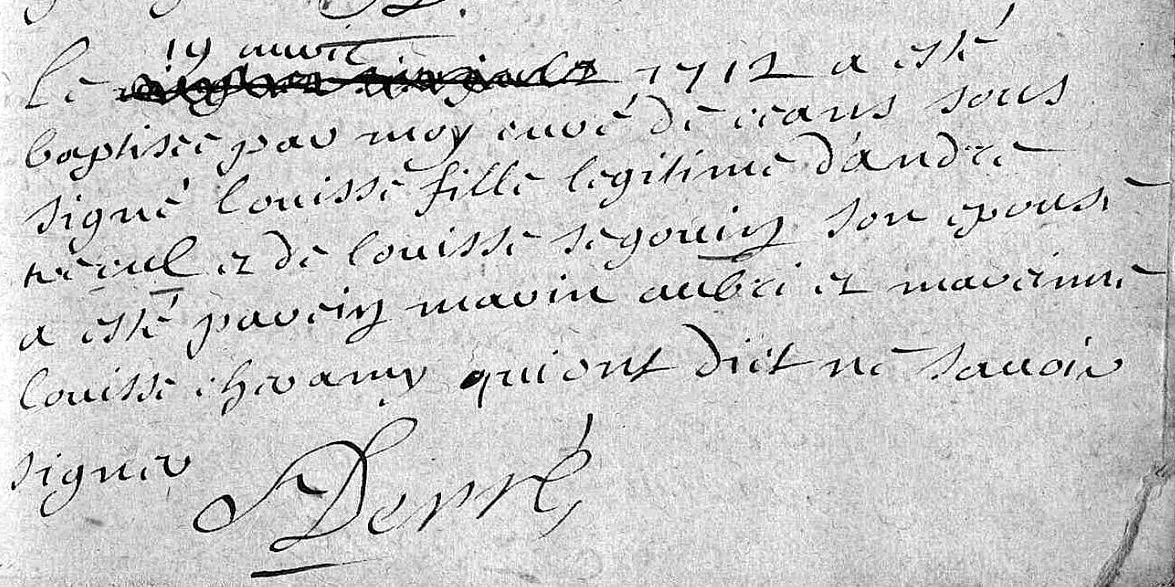 19 avril
Le 1712 a esté
baptisée par moy curé de ceans sous
signé Louisse fille legitime d'andré
et de Louisse segouin son epouse
a esté parein marin aubri et mareinne
Louisse qui ont dict ne savoir
signer